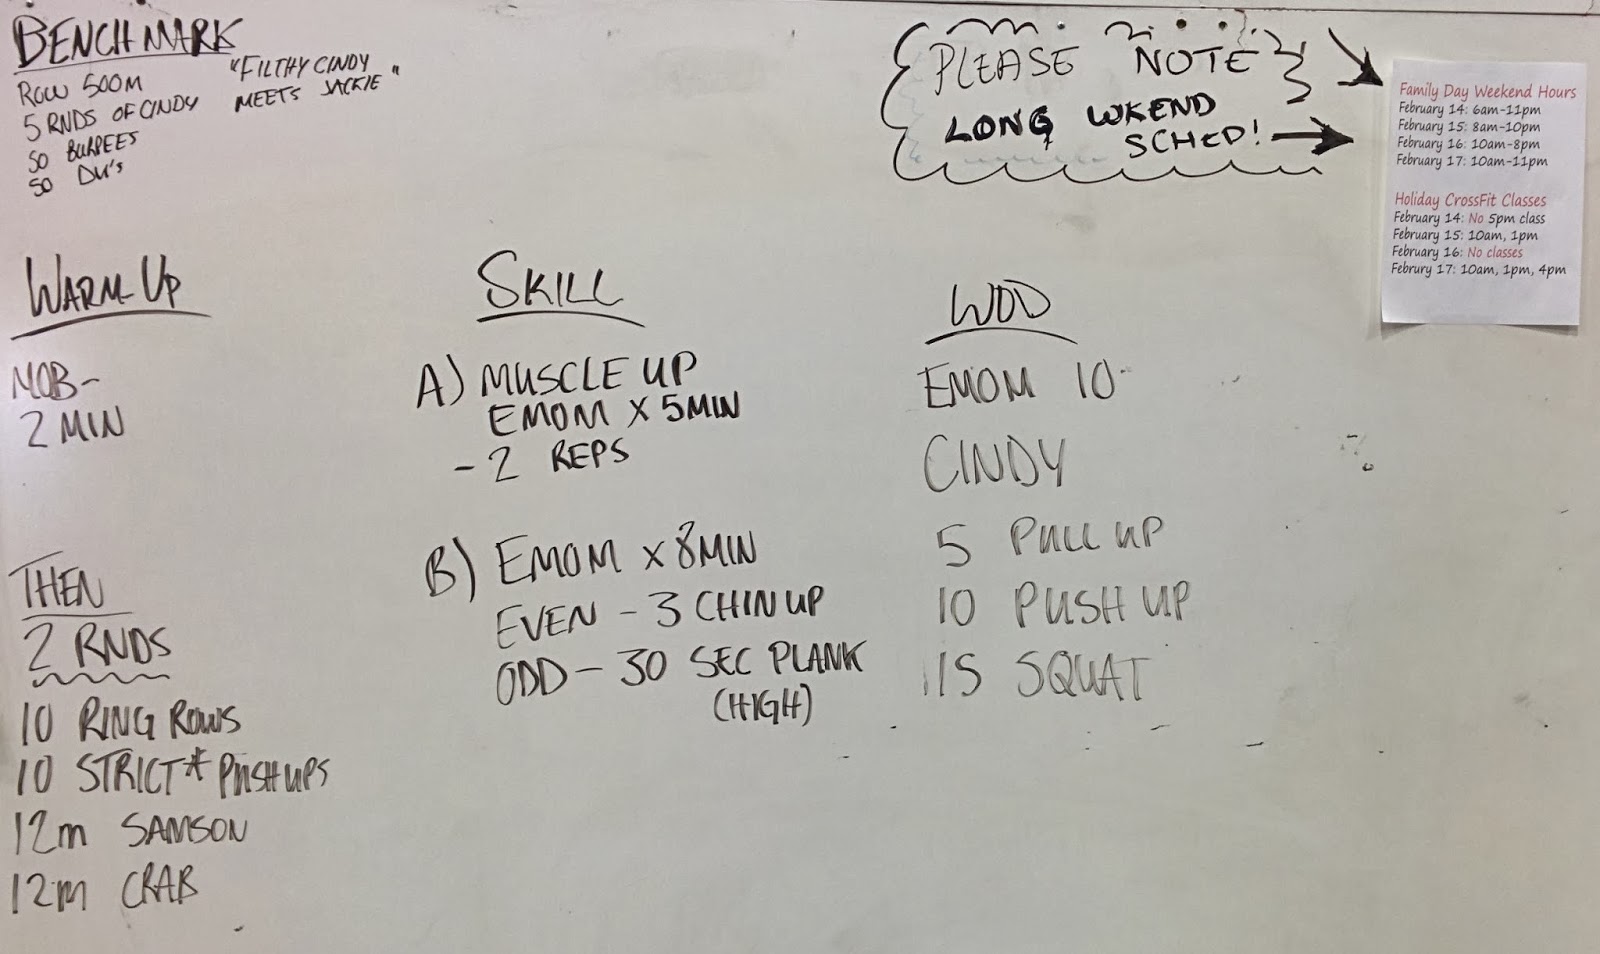 BENCHMARK
"FILTHY CINDY
MEETS JACKIE"
ROW 500M
5 RNDS OF CINDY
50 BURPEES
50 DU's
PLEASE NOTE
LONG WKEND
SCHED!
Family Day Weekend Hours
February 14: 6am-11pm
February 15: 8am-10pm
February 16: 10am-8pm
February 17: 10am-11pm
Holiday CrossFit Classes
February 14: No 5pm class
February 15: 10am, 1pm
February 16: No classes
Februry 17: 10am, 1pm, 4pm
WARM-UP
MOB-
2 MIN
THEN
2 RNDS
10 RING ROWS
10 STRICT* PUSH UPS
12m SAMSON
12m CRAB
SKILL
A) MUSCLE UP
EMOM X 5MIN
- 2 REPS
B) EMOM X 8MIN
EVEN - 3 CHIN UP
ODD - 30 SEC PLANK
(HIGH)
WOD
EMOM 10
CINDY
5 PULL UP
10 PUSH UP
15 SQUAT